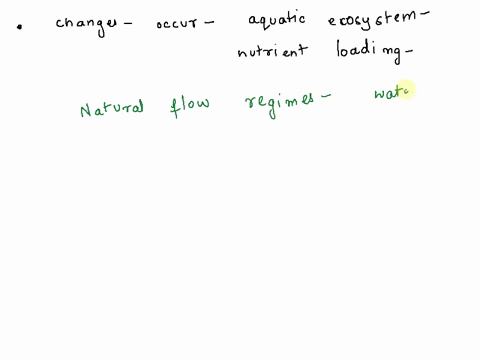 • changes - occur - aquatic ecosystem -
nutrient loading -
Natural flow regimes - wat